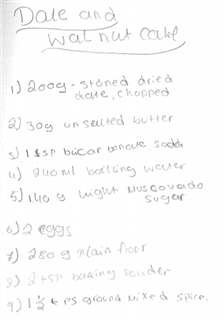 Date and
walnut cake
1) 200g - stoned dried
date, chopped
2) 30g unsalted butter
3) 1 tsp bicarbonate soda
4) 240ml boiling water
5) 140 g light muscovado
sugar
6) 2 eggs
7) 280 g plain flour
8) 2 tsp baking powder
9) 1 ½ tps ground mixed spice.